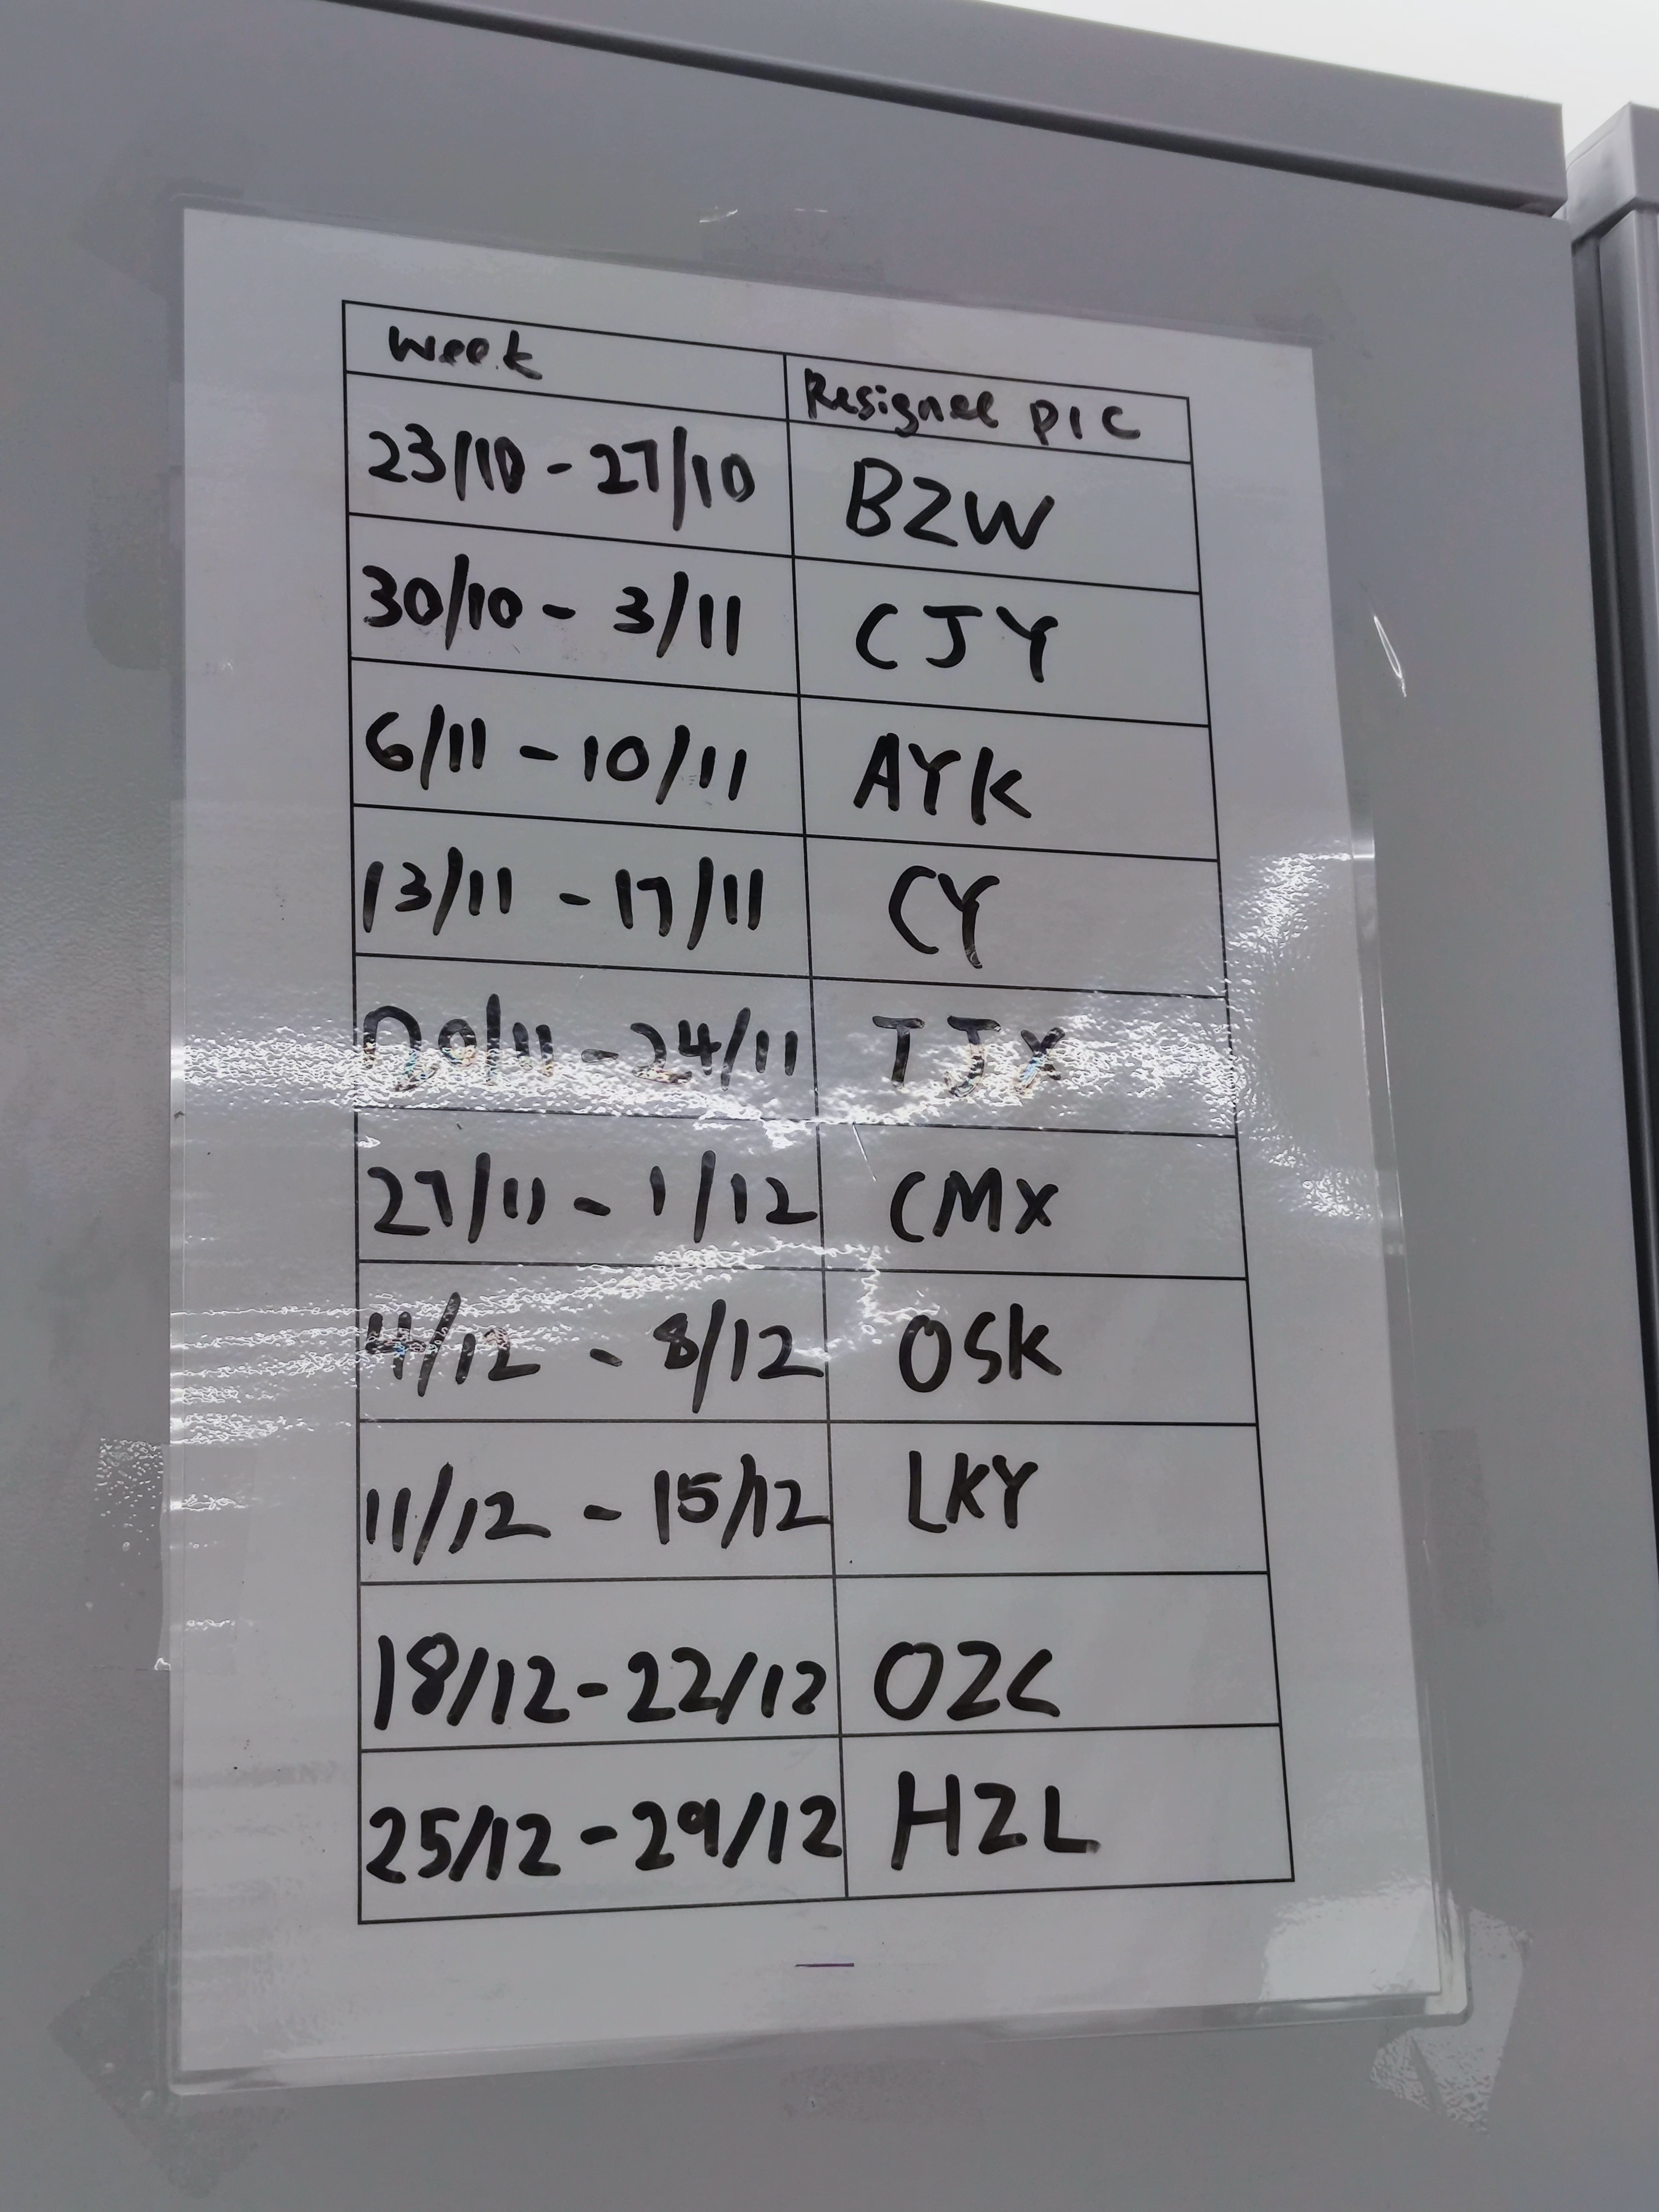 Week Resignee PIC
23/10 - 27/10 BZW
30/10 - 3/11 CJY
6/11 - 10/11 AYK
13/11 - 17/11 CY
20/11 - 24/11 TJX
27/11 - 1/12 CMX
4/12 - 8/12 OSK
11/12 - 15/12 LKY
18/12 - 22/12 OZC
25/12 - 29/12 HZL